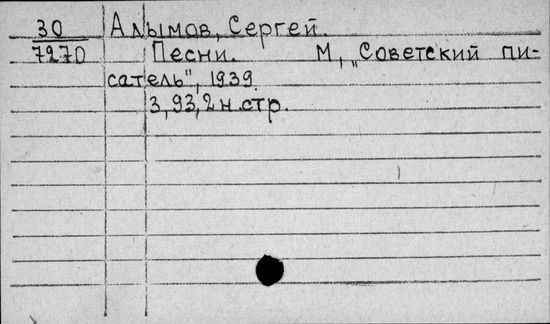 30 Алымов, Сергей.
7270 Песни. М, „Советский пи-
сатель", 1939.
3, 93, 2 н. стр.